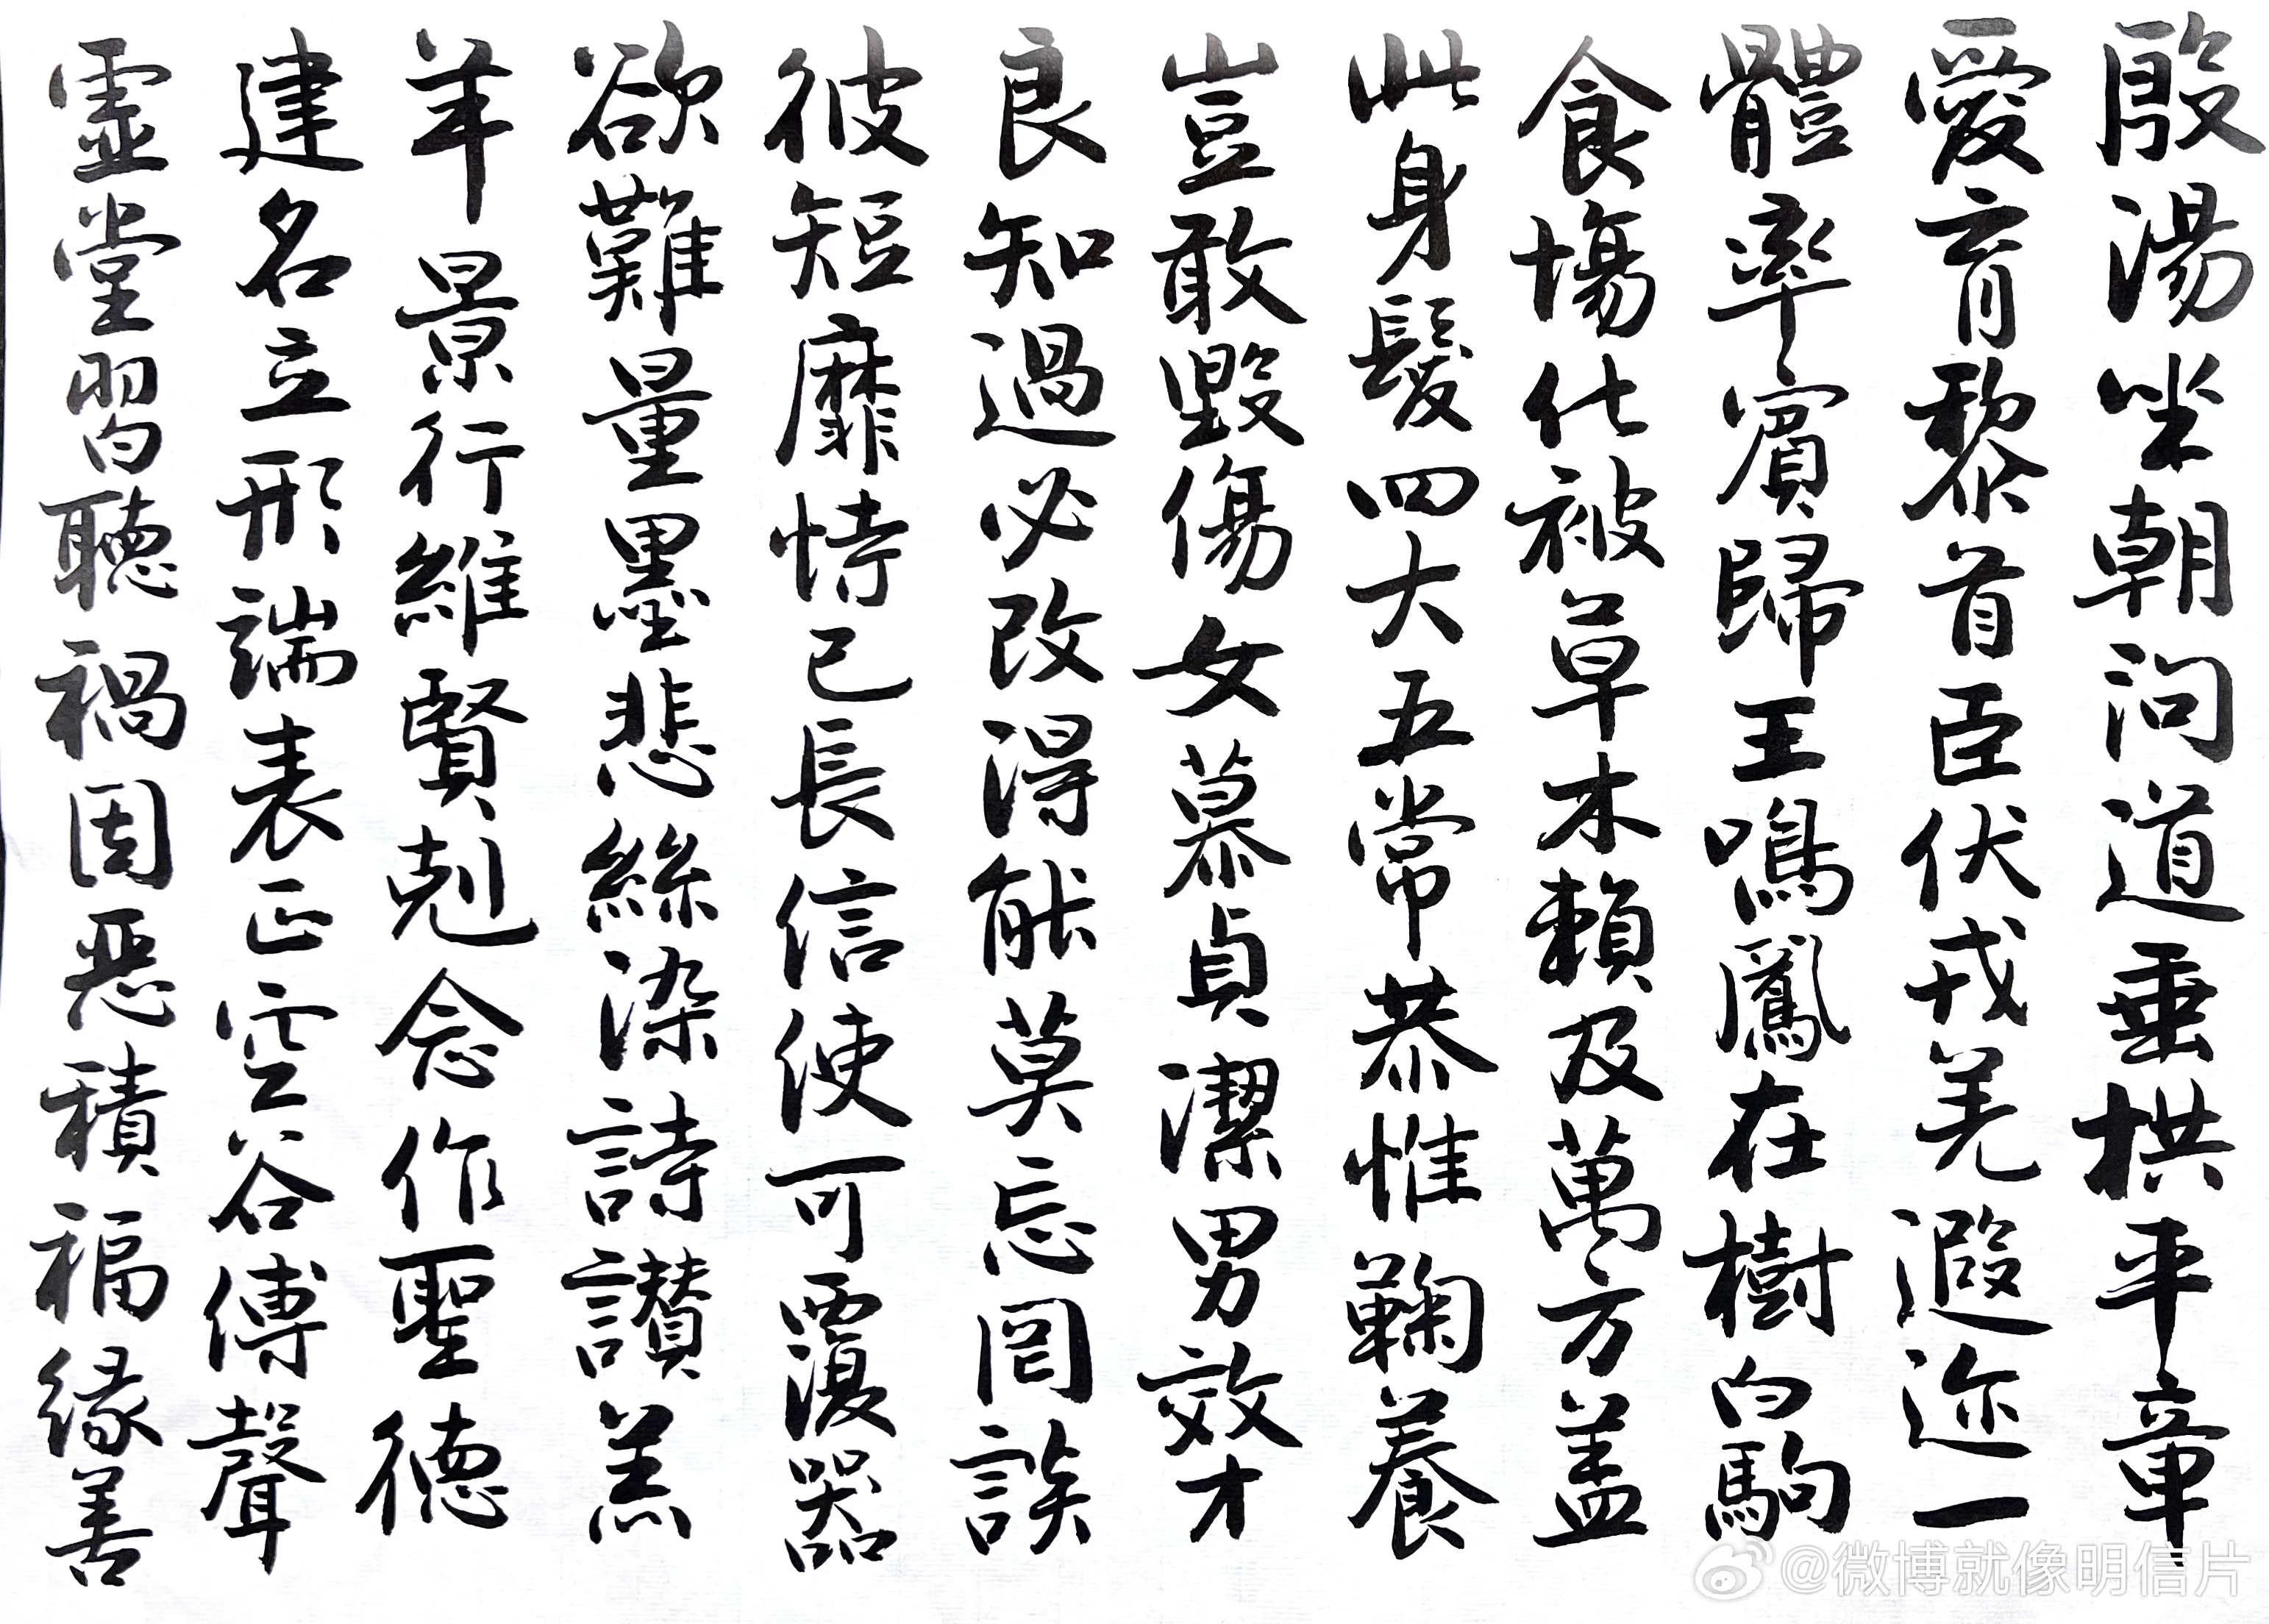 殷湯坐朝問道垂拱平章
愛育黎首臣伏戎羌遐迩一
體率賓歸王鳴鳳在樹白駒
食場化被草木賴及萬方盖
此身髮四大五常恭惟鞠養
豈敢毀傷女慕貞潔男效才
良知過必改得能莫忘罔談
彼短靡恃己長信使可覆器
欲難量墨悲絲染詩讃羔
羊景行維賢剋念作聖德
建名立形端表正空谷傳聲
虛堂習聽禍因惡積福緣善
@微博就像明信片